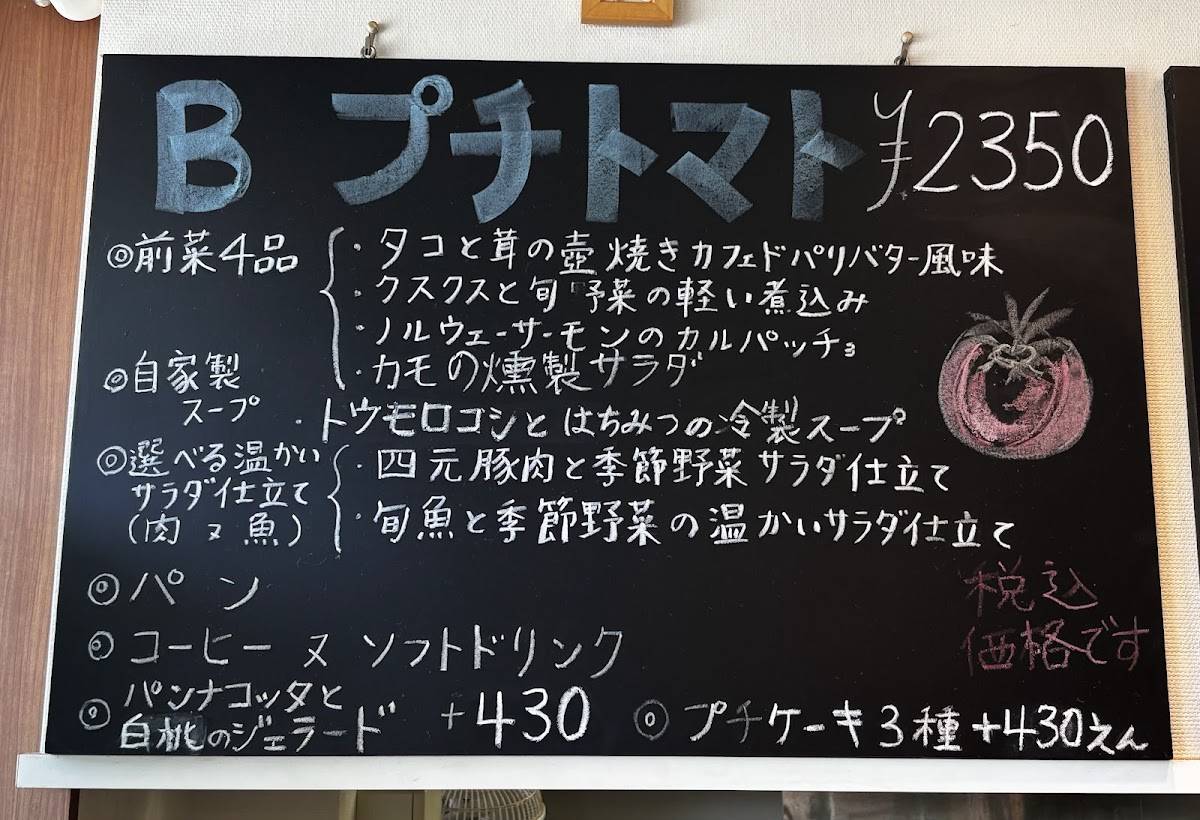 B プチトマト ¥2350
◎前菜4品
・タコと茸の壺焼きカフェドパリバター風味
・クスクスと旬野菜の軽い煮込み
・ノルウェーサーモンのカルパッチョ
・カモの燻製サラダ
◎自家製
スープ
・トウモロコシとはちみつの冷製スープ
◎選べる温かい
サラダ仕立て
(肉又魚)
・四元豚肉と季節野菜サラダ仕立て
・旬魚と季節野菜の温かいサラダ仕立て
◎パン
◎コーヒー又ソフトドリンク
◎パンナコッタと
白桃のジェラード +430
◎プチケーキ3種+430えん
税込
価格です